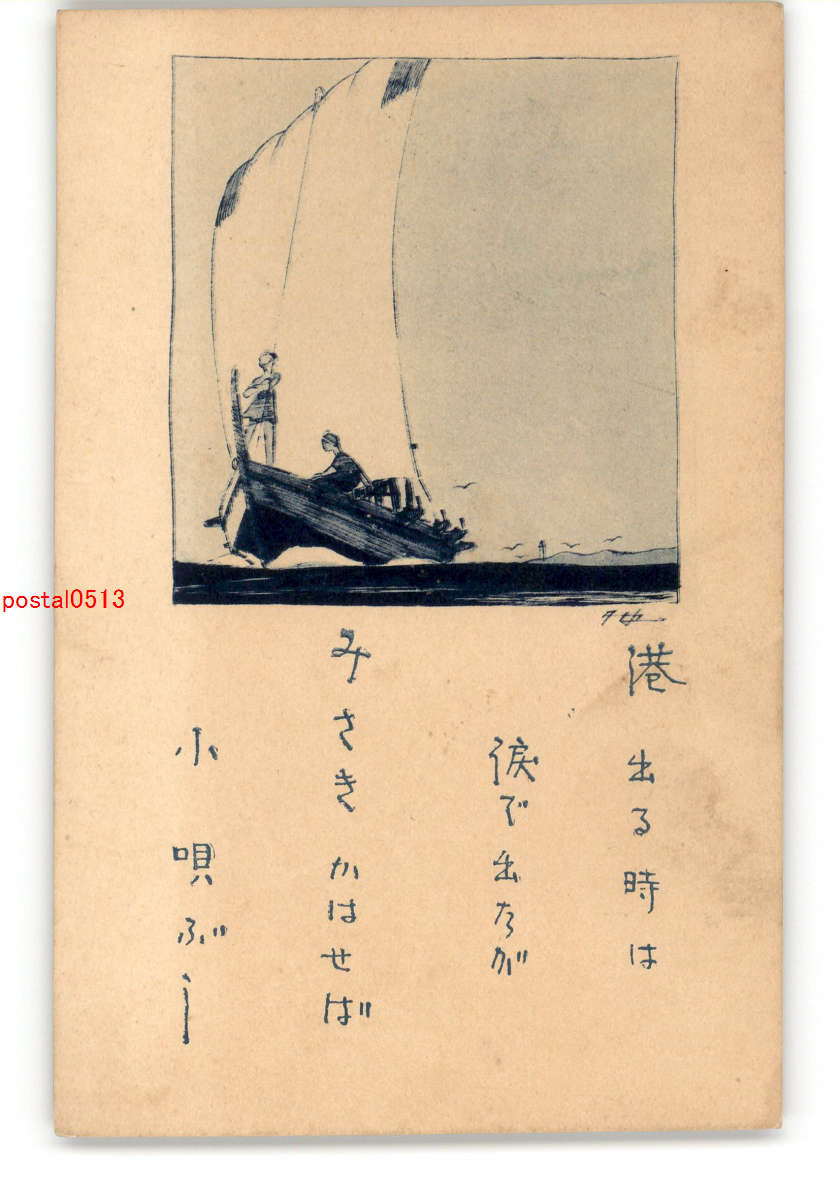 港出る時は
涙で出たが
みさきかはせば
小唄ぶし
postal0513